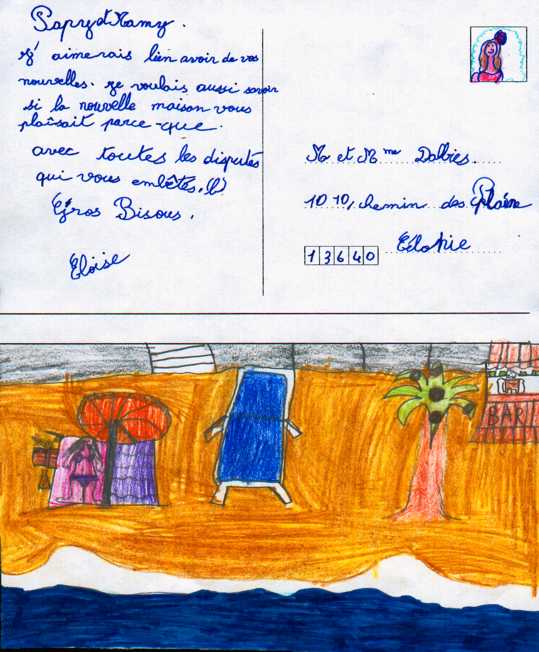 Papy et Mamy.
J'aimerais bien avoir de vos
nouvelles. Je voulais aussi savoir
si la nouvelle maison vous
plaîsait parce-que.
avec toutes les disputes
qui vous embêtes.
Gros Bisous.
Eloïse
M et Mme Dalbies.
10 10, chemin des Plaine
13640
BAR